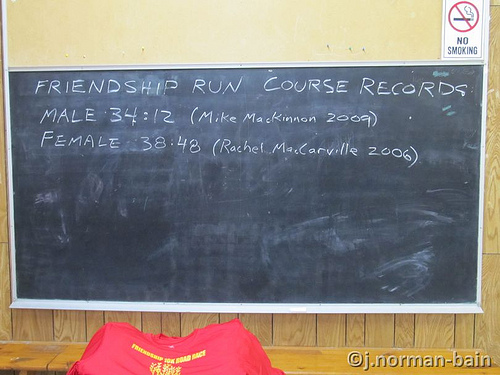 NO
SMOKING
FRIENDSHIP RUN COURSE RECORDS
MALE 34:12 (Mike MacKinnon 2009)
FEMALE 38:48 (Rachel MacCarville 2006)
FRIENDSHIP 10K ROAD RACE
©j.norman-bain